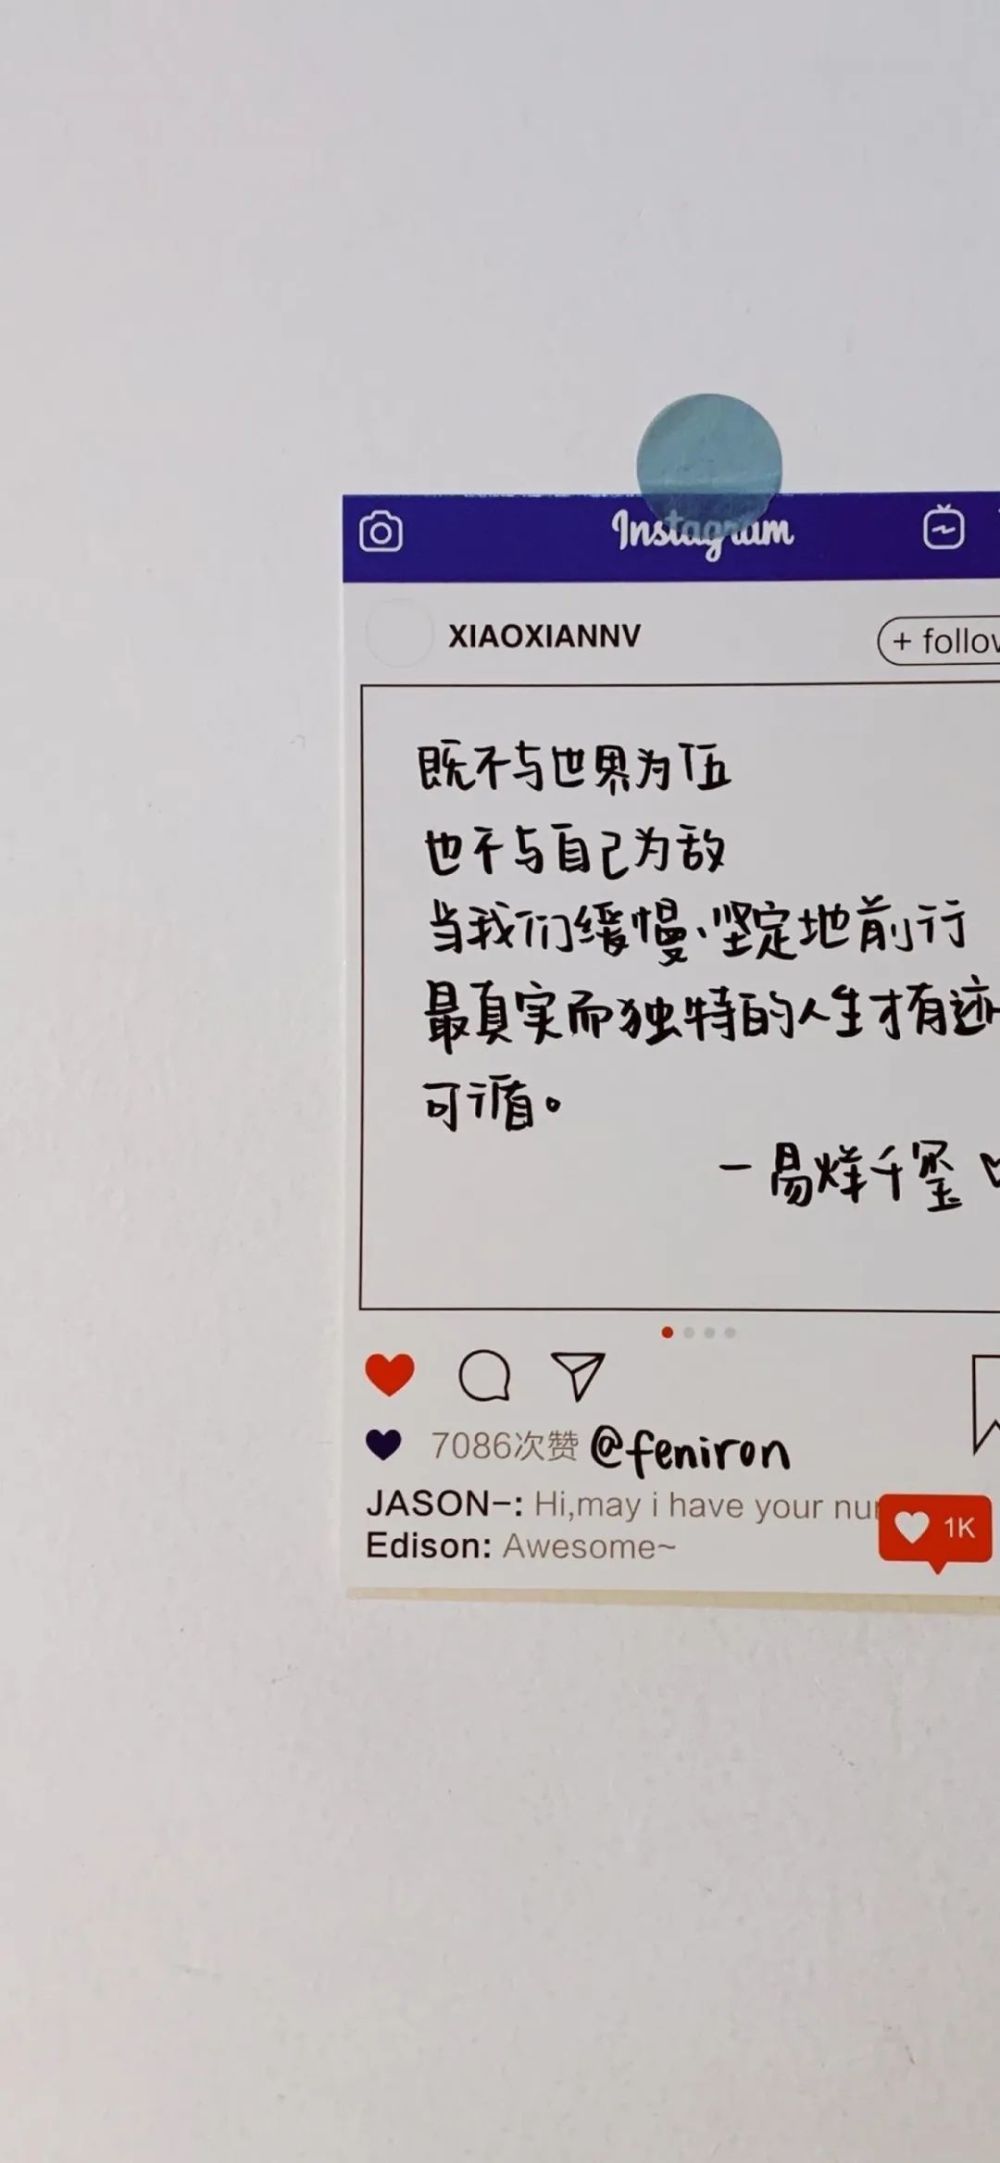 Instagram
XIAOXIANNV
+ follow
既不与世界为伍
也不与自己为敌
当我们缓慢、坚定地前行
最真实而独特的人生才有迹
可循。
—易烊千玺
7086次赞 @feniron
JASON-: Hi,may i have your nu
1K
Edison: Awesome~